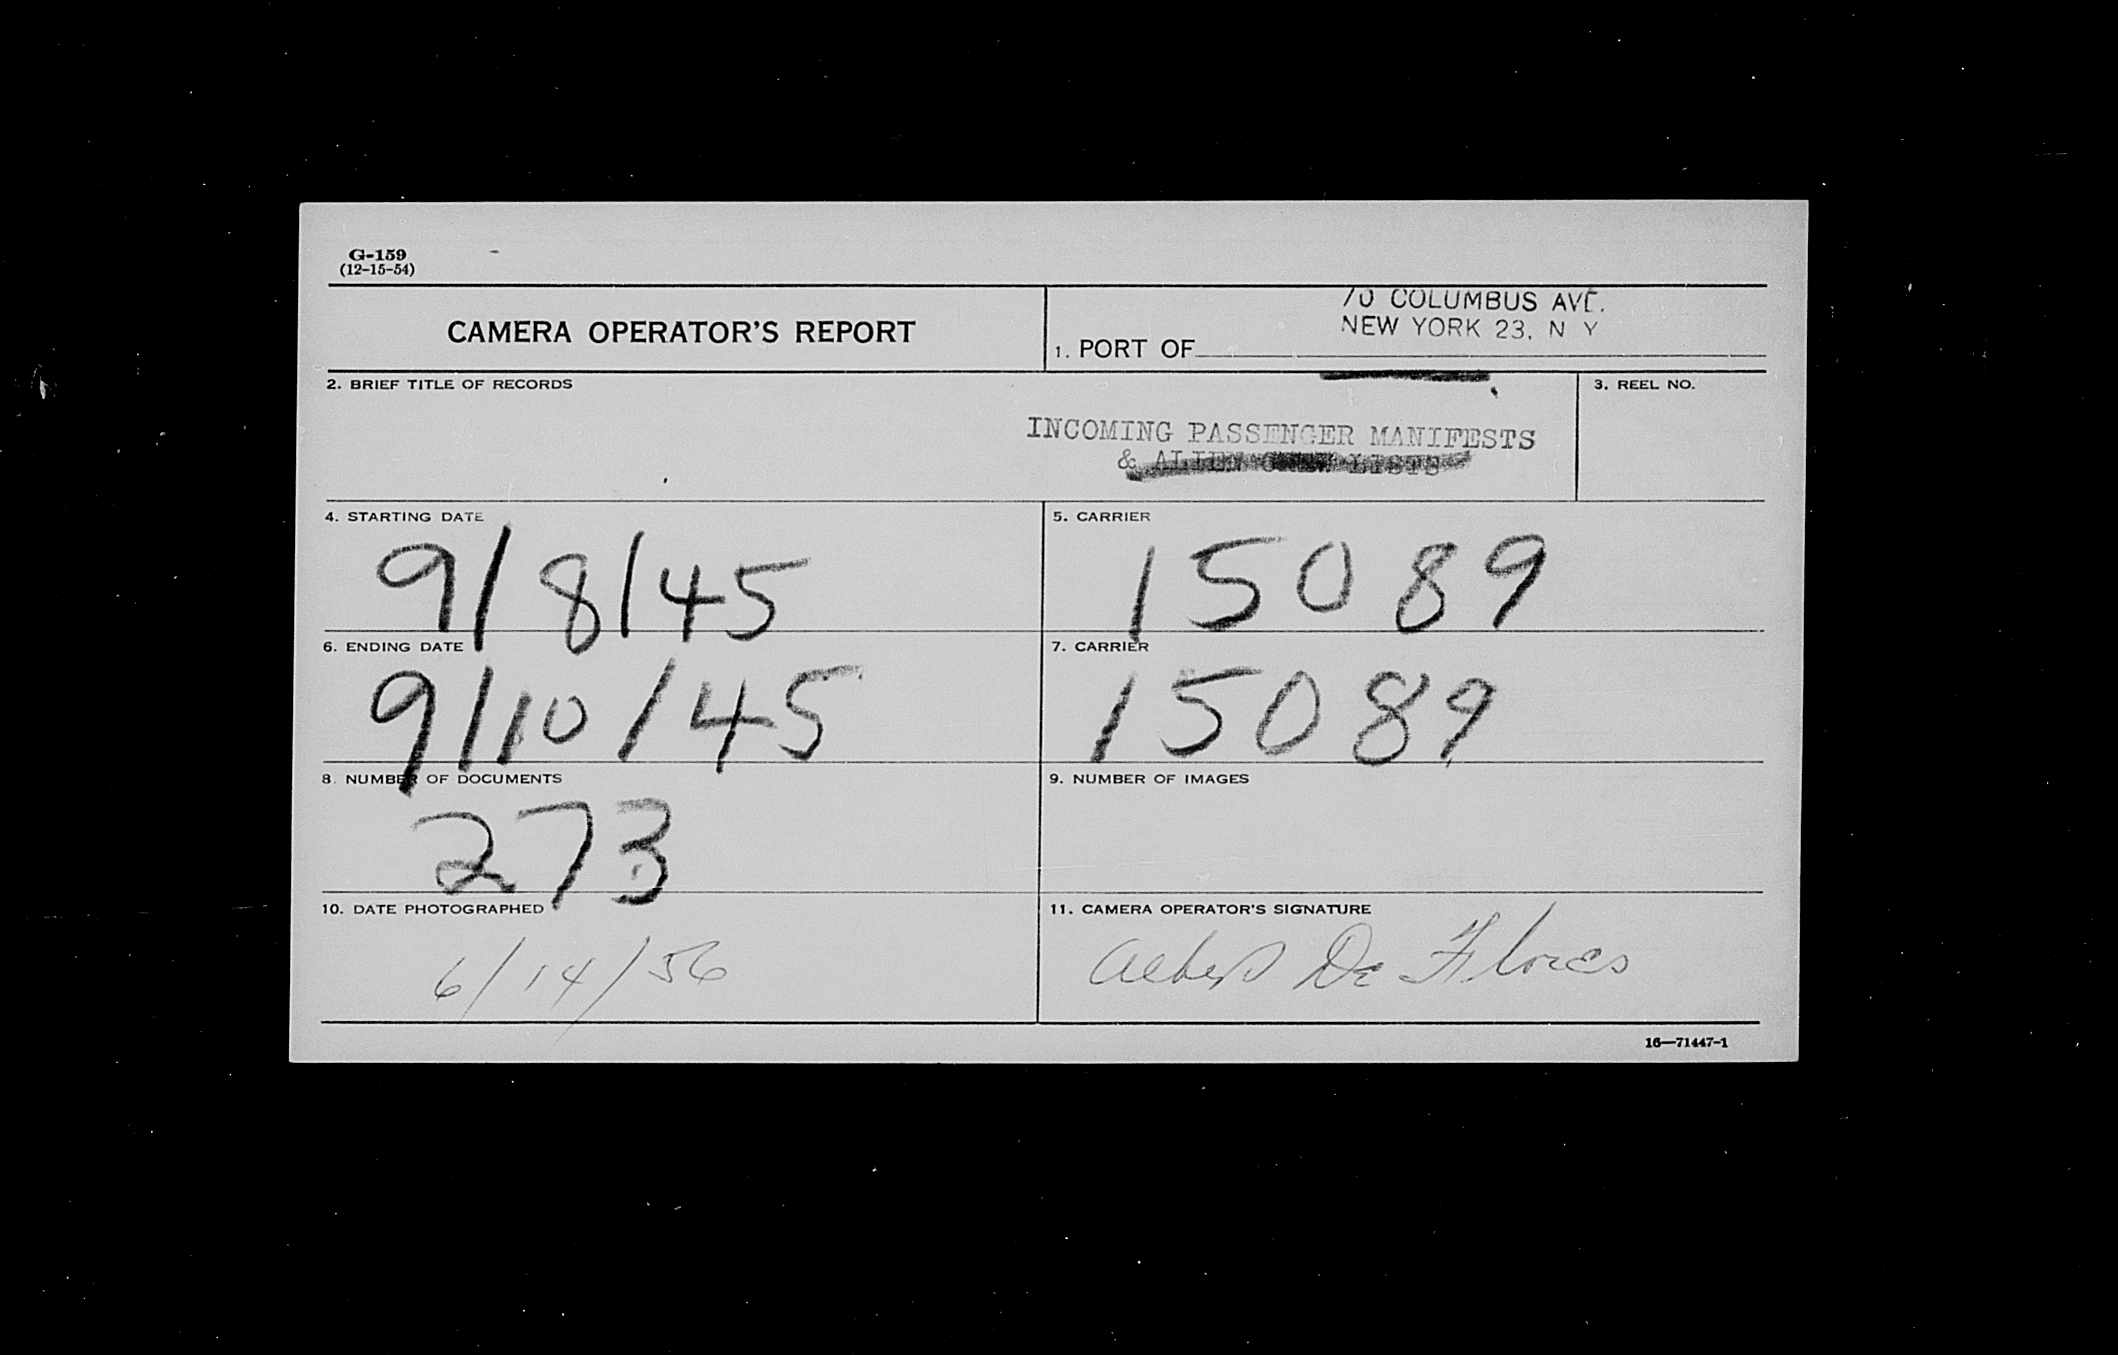 G-159
(12-15-54)
CAMERA OPERATOR'S REPORT
70 COLUMBUS AVE.
NEW YORK 23, N Y
1. PORT OF
2. BRIEF TITLE OF RECORDS
INCOMING PASSENGER MANIFESTS
& ALIEN CREW LISTS
3. REEL NO.
4. STARTING DATE
9/8/45
5. CARRIER
15089
6. ENDING DATE
9/10/45
7. CARRIER
15089
8. NUMBER OF DOCUMENTS
273
9. NUMBER OF IMAGES
10. DATE PHOTOGRAPHED
6/14/56
11. CAMERA OPERATOR'S SIGNATURE
Albert De Flores
16—71447-1